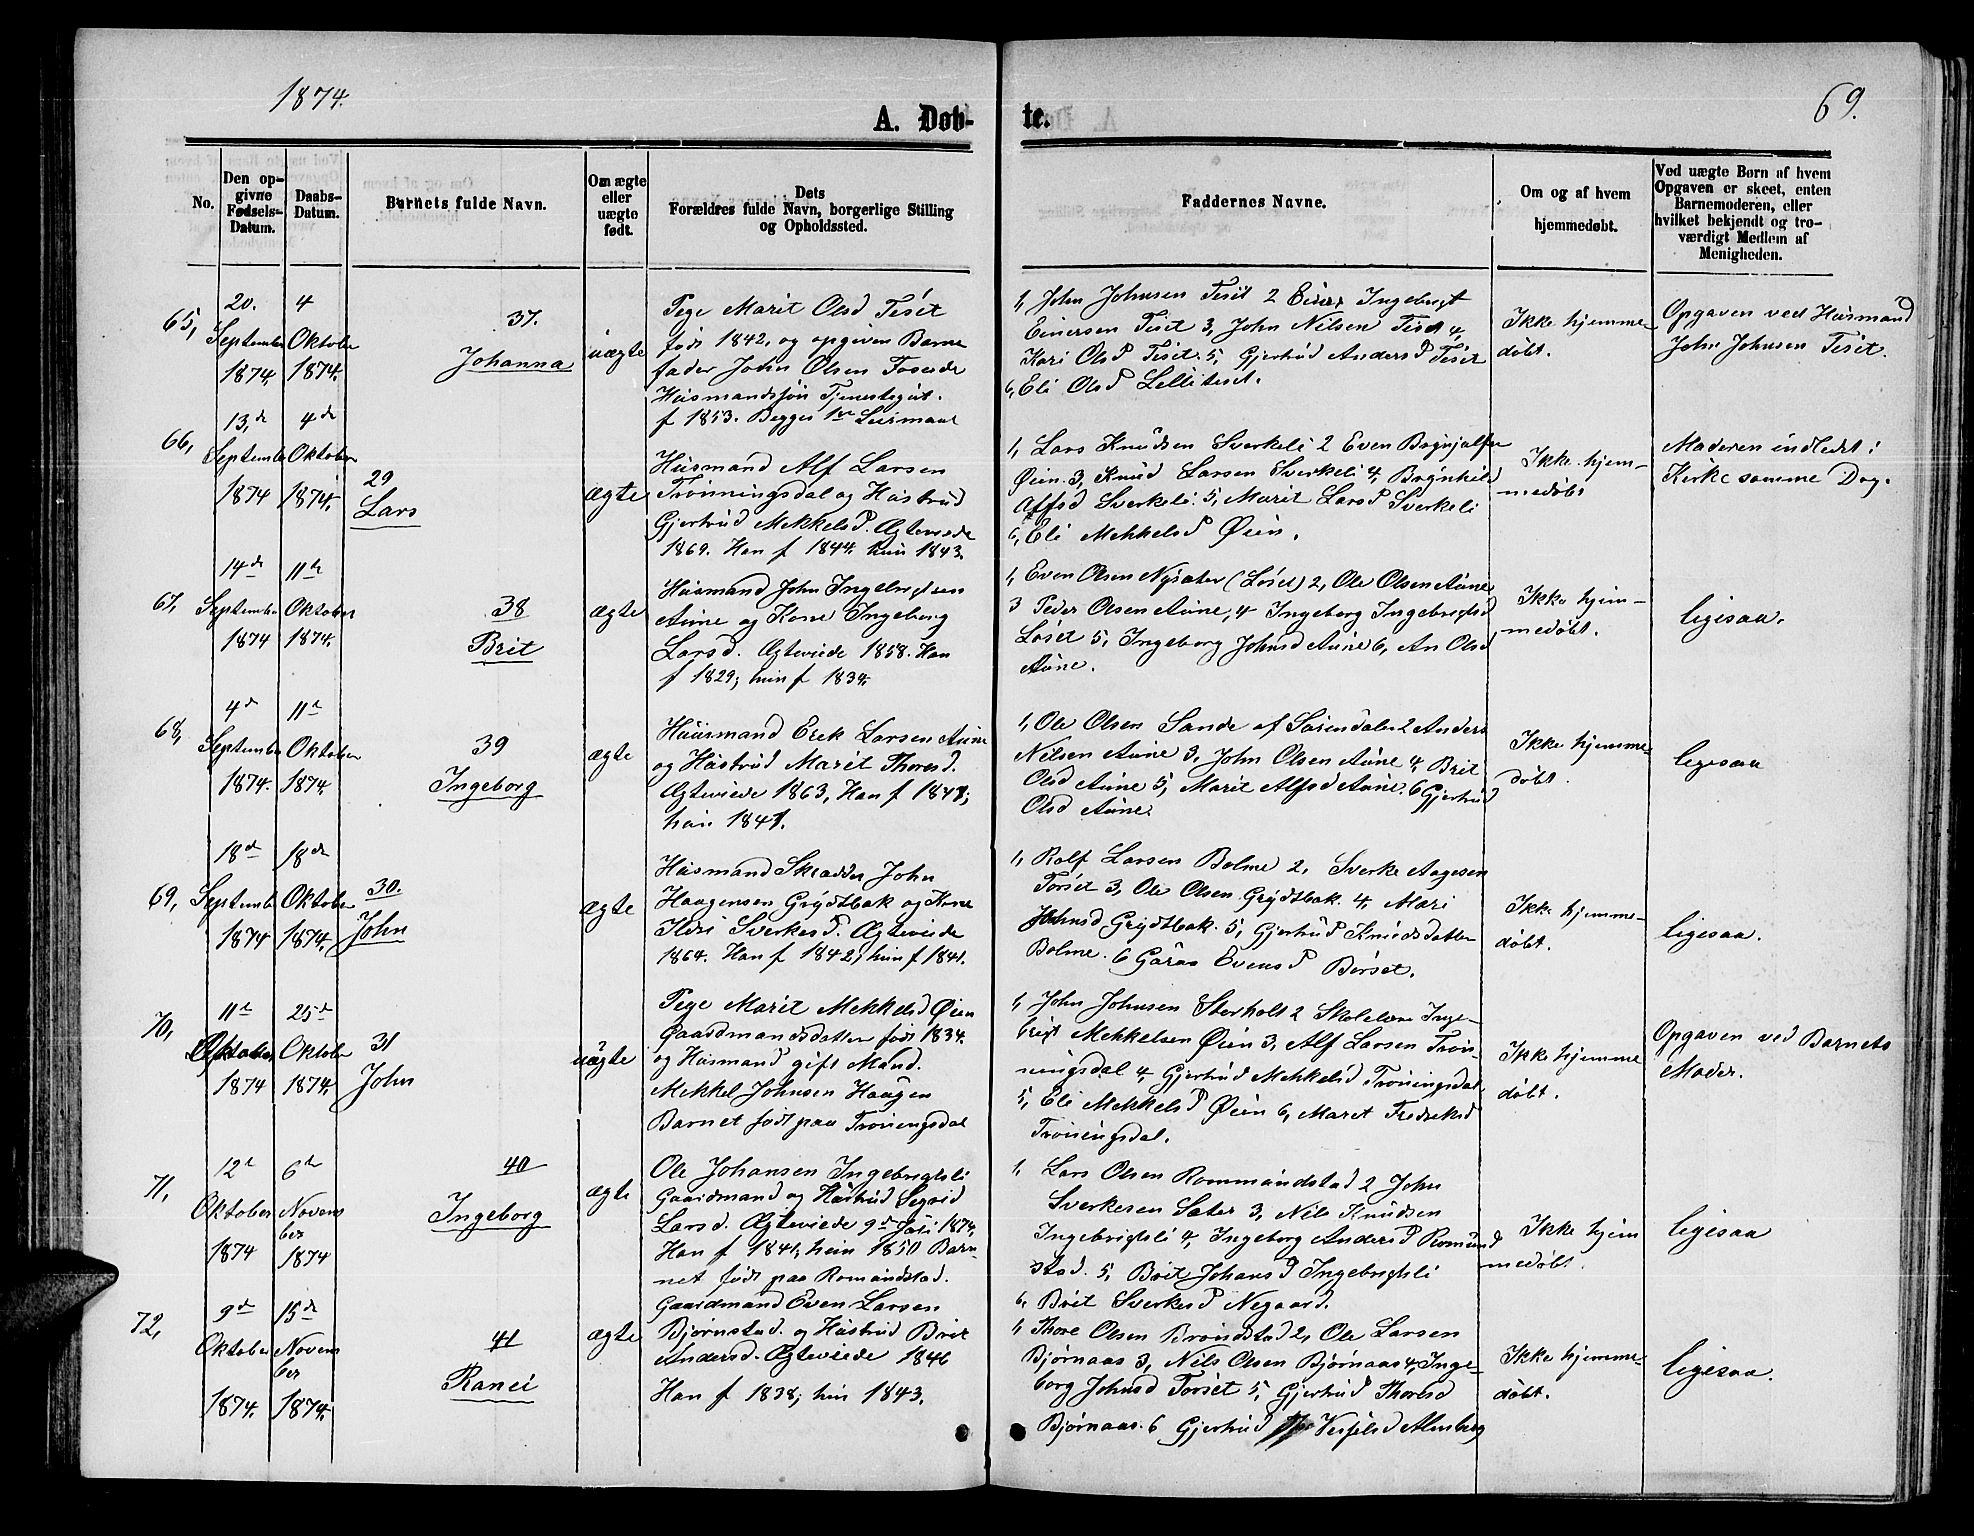 1874.
A. Døb-
te.
69.
No.
Den op-
givne
Fødsels-
Datum.
Daabs-
Datum.
Barnets fulde Navn.
Om ægte
eller
uægte
født.
Dets
Forældres fulde Navn, borgerlige Stilling
og Opholdssted.
Faddernes Navne.
Om og af hvem
hjemmedøbt.
Ved uægte Børn af hvem
Opgaven er skeet, enten
Barnemoderen, eller
hvilket bekjendt og tro-
værdigt Medlem af
Menigheden.
65,
20.
September
1874.
4
Oktober
1874.
37.
Johanna
uægte
Pige Marit Olsd Teset
født 1842, og opgiven Barne
fader John Olsen
Husmandssøn
f 1853. Begges 1ste Leiermaal
1, John Johnsen Teset 2 Ingebrigt
Einersen Teset 3, John Nilsen Teset 4,
Kari Olsd Teset. 5, Gjertrud Andersd Teset
6, Eli Olsd
Ikke hjemme-
døbt.
Opgaven ved Husmand
John Johnsen Teset.
66,
13,de
September
1874
4de
Oktober
1874.
29
Lars
ægte
Husmand Alf Larsen
Trønningsdal og Hustrud
Gjertrud Mekkelsd. Ægteviede
1869. Han f 1844. hun 1843.
1, Lars Knudsen Sverkeli 2 Even
Øien. 3, Knud Larsen Sverkeli 4, Brynhild
Alfsd Sverkeli. 5, Marit Larsd Sverkeli
6, Eli Mekkelsd Øien.
Ikke hjem-
medøbt
Moderen indledet i
Kirke samme Dag.
67,
14de
September
1874
11te
Oktober
1874.
38
Brit
ægte
Husmand John Ingebrigtsen
Aune og Kone Ingeborg
Larsd. Ægteviede 1858. Han
f 1829; hun f 1834.
1, Even Olsen Nysæter (Løset) 2, Ole Olsen Aune
3 Peder Olsen Aune, 4 Ingeborg Ingebrigtsd
Løset 5, Ingeborg Johnsd Aune 6, An Olsd
Aune.
Ikke hjem-
medøbt.
ligesaa.
68,
4de
September
1874.
11te
Oktober
1874.
39
Ingeborg
ægte
Huusmand Erek Larsen Aune
og Hustrud Marit Thoresd.
Ægteviede 1863, Han f 1841;
hun 1841.
1, Ole Olsen Sande af Surendalen 2 Anders
Nilsen Aune 3, John Olsen Aune 4, Brit
Olsd Aune 5, Marit Alfsd Aune. 6 Gjertrud
Olsd Aune
Ikke hjemme-
døbt.
ligesaa
69,
18de
September
1874
18de
Oktober
1874.
30.
John
ægte
Husmand Skrædder John
Haagensen Grydtbak og Kone
Ildri Sverkesd. Ægteviede
1864. Han f 1842; hun f 1841.
1, Rolf Larsen Bolme 2, Sverke Aagesen
Torset 3, Ole Olsen Grydtbak. 4, Mari
Johnsd Grydtbak. 5, Gjertrud Knudsdatter
Bolme. 6 Guroe Evensd Børset.
Ikke hjemme-
døbt.
ligesaa.
70,
11te
Oktober
1874
25de
Oktober
1874.
31
John
uægte
Pige Marit Mekkelsd Øien
Gaardmandsdatter født 1834.
og Husmand gift Mand.
Mekkel Johnsen Haagen
Barnet født paa Trønningsdal
1, John Johnsen Storholt 2 Skolelærer Inge-
brigt Mekkelsen Øien 3, Alf Larsen Trøn-
ningsdal 4, Gjertrud Mekkelsd Trøningsdal
5, Eli Mekkelsd Øien 6, Maret Fredreksd
Trøningsdal.
Ikke hjemme
døbt.
Opgaven ved Barnets
Moder.
71,
12te
Oktober
1874
6te
Novem
ber
1874
40
Ingeborg
ægte
Ole Johansen Ingebrigtsli
Gaardmand og Hustrud Segrid
Larsd. Ægteviede 9de Juli 1874,
Han f 1841, hun 1850 Bar-
net født paa Romundstad.
1, Lars Olsen Rommundstad 2 John
Sverkesen Sæter 3, Nils Knudsen
Ingebrigtsli 4, Ingeborg Andersd Romund
stad. 5, Brit Johansd Ingebrigtsli
6, Brit Sverkesd Negaard.
Ikke hjem
medøbt.
ligesaa
72,
9de
Oktober
1874.
15de
Novem
ber
1874.
41
Ranei
ægte
Gaardmand Even Larsen
Bjørnstad. og Hustrud Brit
Andersd. Ægteviede 1846
Han f 1838; hun 1843.
1, Thore Olsen Brøndstad 2, Ole Larsen
Bjørnaas 3, Nils Olsen Bjørnaas 4, Inge-
borg Johnsd Torset 5, Gjertrud Thoresd
Bjørnaas. 6 Gjertrud
Ikke hjemme-
døbt.
ligesaa.